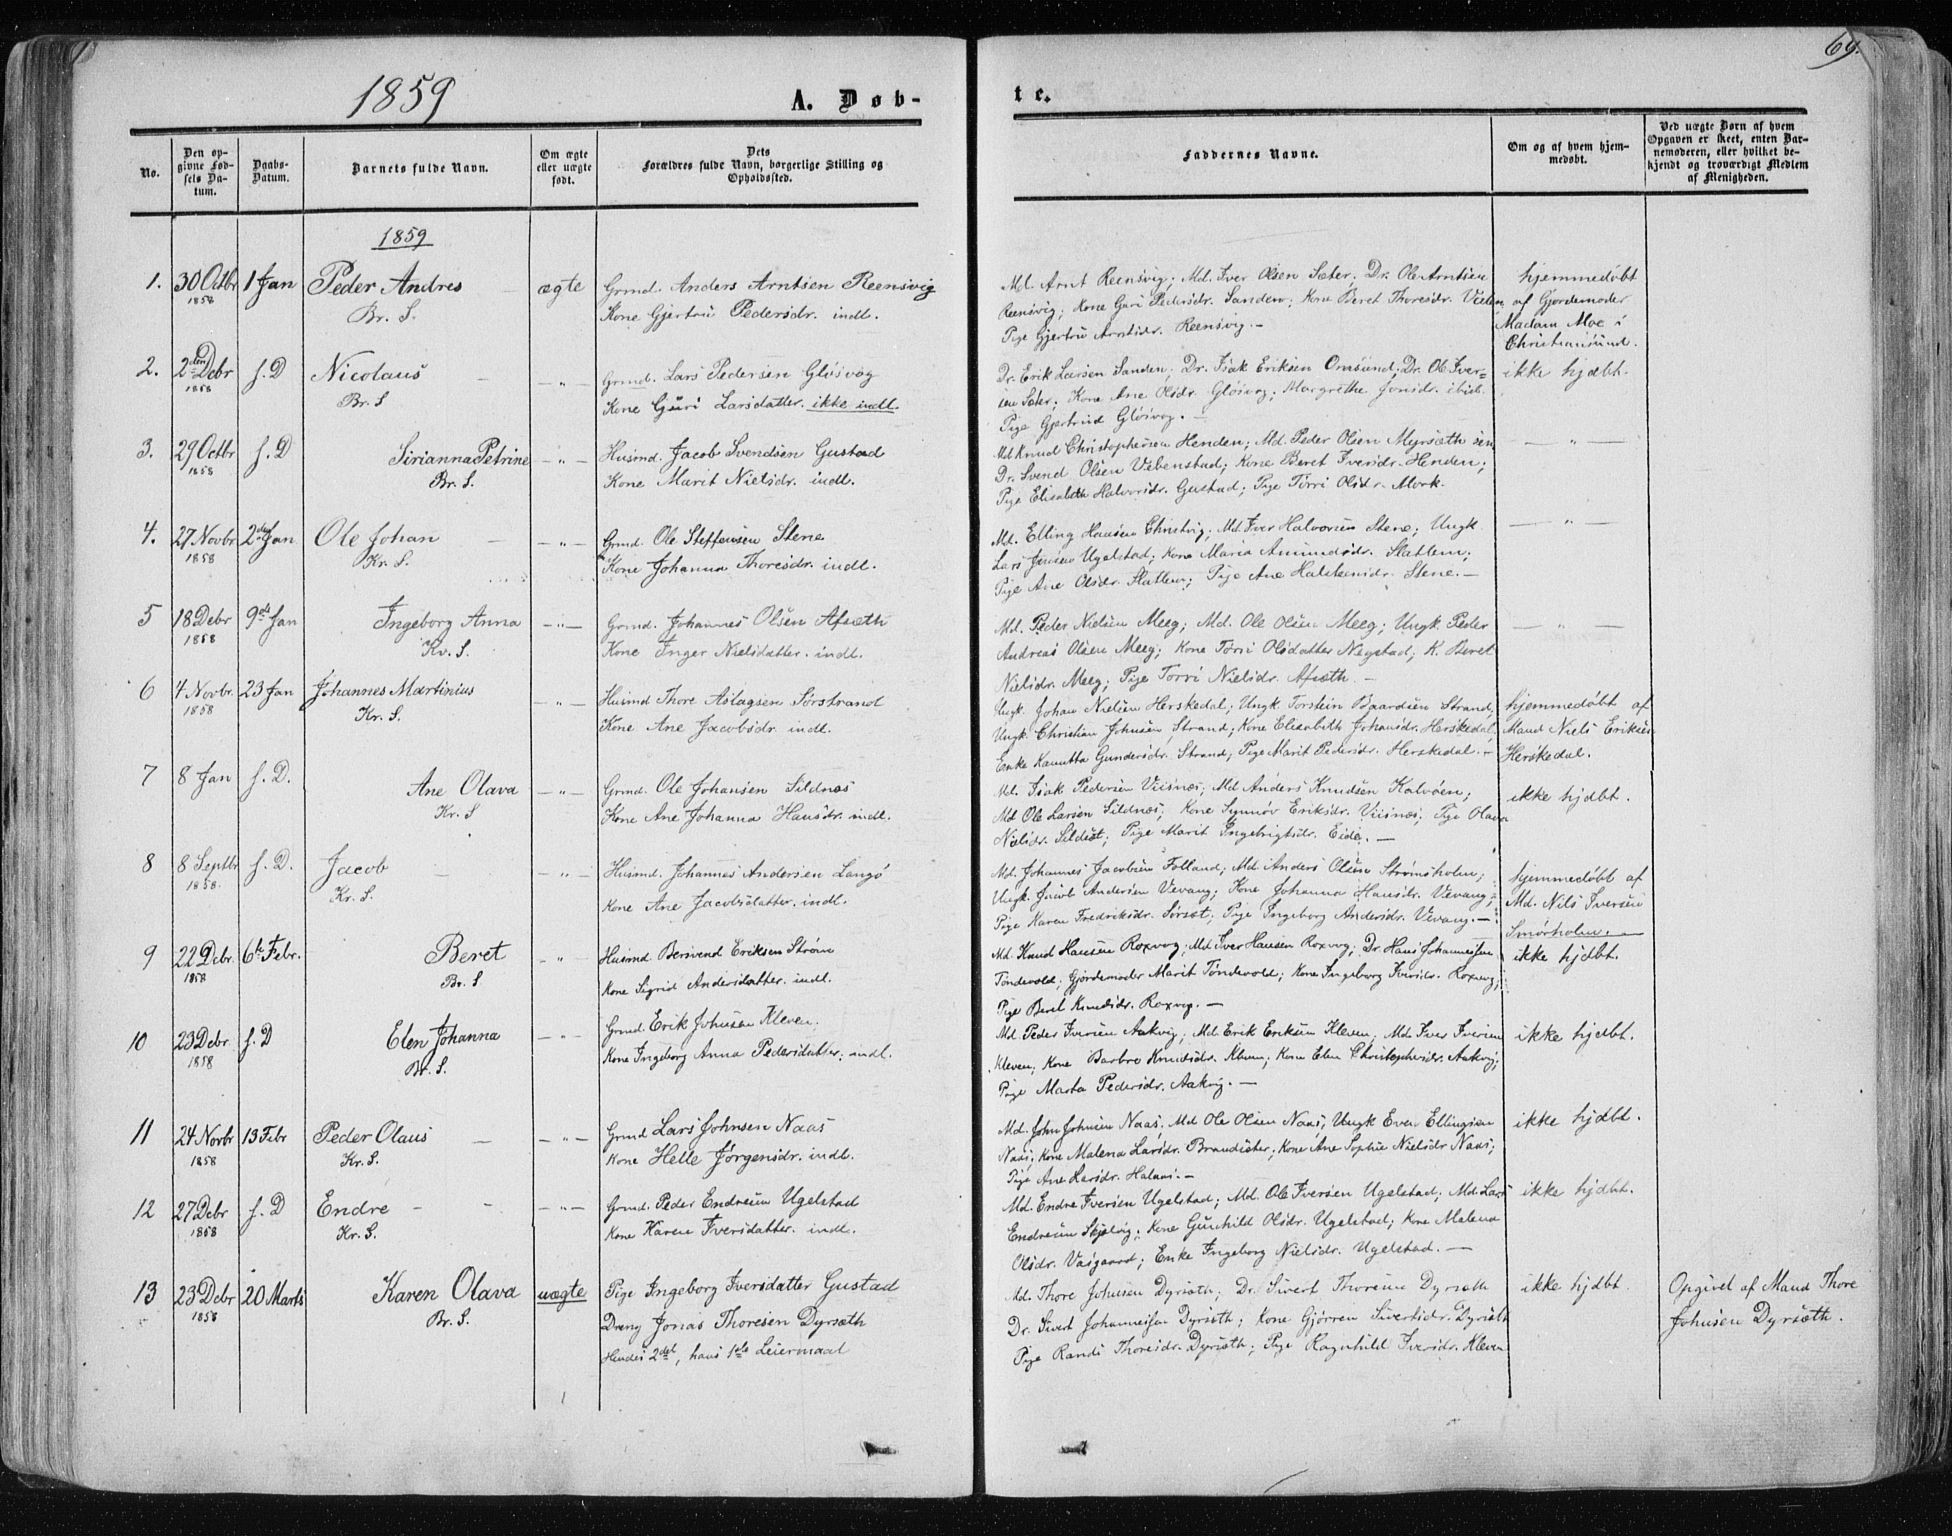 69.
1859
A. Døb-
te.
No.
Den op-
givne Fød-
sels Da-
tum.
Daabs-
Datum.
Barnets fulde Navn.
Om ægte
eller uægte
født.
Dets
Forældres fulde Navn, borgerlige Stilling og
Opholdssted.
Faddernes Navne.
Om og af hvem hjem-
medøbt.
Ved uægte Børn af hvem
Opgaven er skeet, enten Bar-
nemoderen, eller hvilket be-
kjendt og troværdigt Medlem
af Menigheden.
1859
1. 30 Octbr 1858 1 Jan Peder Andres Br. S. ægte
Grmd. Anders Arntsen Reensvig
Kone Gjertru Pedersdr. indl.
Md. Arnt Reensvig; Md. Iver Olsen Sæter; Dr. Ole Arntsen
Reensvig; Kone Guri Pedersdr. Sanden; Kone Beret Thoresdr.
Pige Gjertru Arntsdr. Reensvig. —
hjemmedøbt
af Gjordemoder
Madam Moe i
Christiansund.
2. 2den Debr 1858 s. D Nicolaus Br. S — " —
Grmd. Lars Pedersen Gløsvog
Kone Guri Larsdatter. ikke indl.
Dr. Erik Larsen Sanden; Dr. Isak Eriksen Orasund; Dr. Ole Iver-
sen Sæter; Kone Ane Olsdr. Gløsvog; Margrethe Jonsdr. ibid.
Pige Gjertrud Gløsvog. —
ikke hjdbt.
3. 29 Octbr 1858 s. D Sirianna Petrine Br. S. — " —
Husmd. Jacob Svendsen Gustad
Kone Marit Nielsdr. indl.
Md Knud Christophersen Henden; Md. Peder Olsen Myrsæth sen
Dr. Svend Olsen Vebenstad; Kone Beret Iversdr. Henden;
Pige Elisabeth Halvorsdr. Gustad; Pige Torri Olsdr. Mork.
— " —
4. 27 Novbr 1858 2den Jan Ole Johan Kr. S. — " —
Grmd. Ole Steffensen Stene
Kone Johanna Thoresdr. indl.
Md. Elling Hansen Christvig; Md. Iver Halvorsen Stene; Ungk.
Lars Jensen Ugelstad; Kone Maria Amundsdr. Slatlem;
Pige Ane Olsdr. Slatlem; Pige Ane Halstensdr. Stene. —
— " —
5 18 Debr 1858 9de Jan Ingeborg Anna Kv. S. — " —
Grmd. Johannes Olsen Afsæth
Kone Inger Nielsdatter. indl.
Md. Peder Nielsen Meeg; Md. Ole Olsen Meeg; Ungk Peder
Andreas Olsen Meeg; Kone Torri Olsdatter Negstad; K. Beret
Nielsdr. Meeg; Pige Torri Nielsdr. Afsæth. —
— " —
6 4 Novbr. 1858 23 Jan Johannes Martinius Kr. S. — " —
Husmd Thore Aslagsen Sørstrand
Kone Ane Jacobsdr. indl.
Ungk. Johan Nielsen Herskedal; Ungk Torstein Baardsen Strand,
Ungk. Christian Johnsen Strand; Kone Elisabeth Johansdr. Herskedal,
Enke Kanutta Gundersdr. Strand; Pige Marit Pedersdr. Herskedal. —
hjemmedøbt af
Mand Niels Eriksen
Herskedal.
7 8 Jan s. D. Ane Olava Kr. S — " —
Grmd. Ole Johansen Sildnes
Kone Ane Johanna Hansdr. indl.
Md. Isak Pedersen Viisnæs; Md Anders Knudsen Kalvøen;
Md Ole Larsen Sildnæs; Kone Synnøv Eriksdr. Viisnæs; Pige Olava
Nielsdr. Sildset; Pige Marit Ingebrigtsdr. Eide. —
ikke hjdbt.
8 8 Septbr 1858. s. D. Jacob Kr. S. — " —
Husmd. Johannes Andersen Langø
Kone Ane Jacobsdatter. indl.
Md. Johannes Jacobsen Folland; Md Anders Olsen Strømsholm;
Ungk. Jacob Andersen Vevang; Kone Johanna Hansdr. Vevang;
Pige Karen Fredriksdr. Sørset; Pige Ingeborg Andersdr. Vevang. —
hjemmedøbt af
Md. Nils Iversen
Smørholm. —
9 22 Debr. 1858 6te Febr. Beret Br. S — " —
Husmd Bersvend Eriksen Strøm
Kone Sigrid Andersdatter. indl.
Md. Knud Hansen Roxvog; Md Iver Hansen Roxvog; Dr. Hans Johannessen
Tøndevold; Gjordemoder Marit Tøndevold; Kone Ingeborg Iversdr. Roxvog;
Pige Beret Knudsdr. Roxvog. —
ikke hjdbt.
10 23 Debr 1858 s. D Elen Johanna Br. S. — " —
Grmd. Erik Johnsen Kleven.
Kone Ingeborg Anna Pedersdatter. indl.
Md. Peder Iversen Aakvig; Md. Erik Eriksen Kleven; Md Iver Iversen
Kleven; Kone Barbro Knudsdr. Kleven; Kone Elen Christophersdr. Aakvig;
Pige Marta Pedersdr. Aakvig. —
ikke hjdbt.
11 24 Novbr 1858 13 Febr Peder Olaus Kr. S. — " —
Grmd Lars Johnsen Naas
Kone Helle Jørgensdr. indl.
Md. John Johnsen Naas; Md Ole Olsen Naas; Ungk Even Ellingsen
Naas; Kone Malena Larsdr. Brandsæter; Kone Ane Sophie Nielsdr Naas;
Pige Ane Larsdr. Halaas. —
ikke hjdbt.
12 27 Debr 1858 s. D Endre Kr. S. — " —
Grmd. Peder Endresen Ugelstad
Kone Karen Iversdatter. indl.
Md. Endre Iversen Ugelstad; Md. Ole Iversen Ugelstad; Md. Lars
Endresen Skjølsvig; Kone Gunhild Olsdr. Ugelstad; Kone Malena
Olsdr. Vaagaard; Enke Ingeborg Nielsdr. Ugelstad. —
ikke hjdbt.
13 23 Debr 1858 20 Marts Karen Olava Br. S. uægte
Pige Ingeborg Iversdatter Gustad
Dreng Jonas Thoresen Dyrsæth
Hendes 2det, hans 1ste Leiermaal
Md. Thore Johnsen Dyrsæth; Dr. Sivert Thoresen Dyrsæth
Dr. Sivert Johannessen Dyrsæth; Kone Gjørren Sivertsdr. Dyrsæth
Pige Randi Thoresdr. Dyrsæth; Pige Ragnhild Iversdr. Kleven
ikke hjdbt.
Opgivet af Mand Thore
Johnsen Dyrsæth.